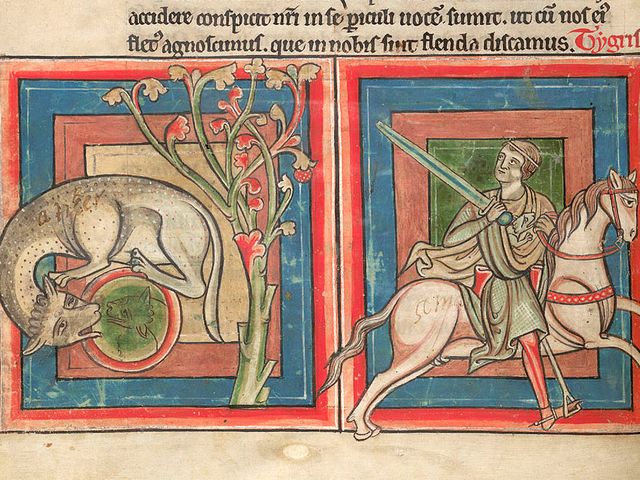 accidere conspicit nr̄i in se periculi uocē sumit. ut cū nos ei᷒
flet᷒ agnoscimus. que in nobis sint flenda discamus. Tygris